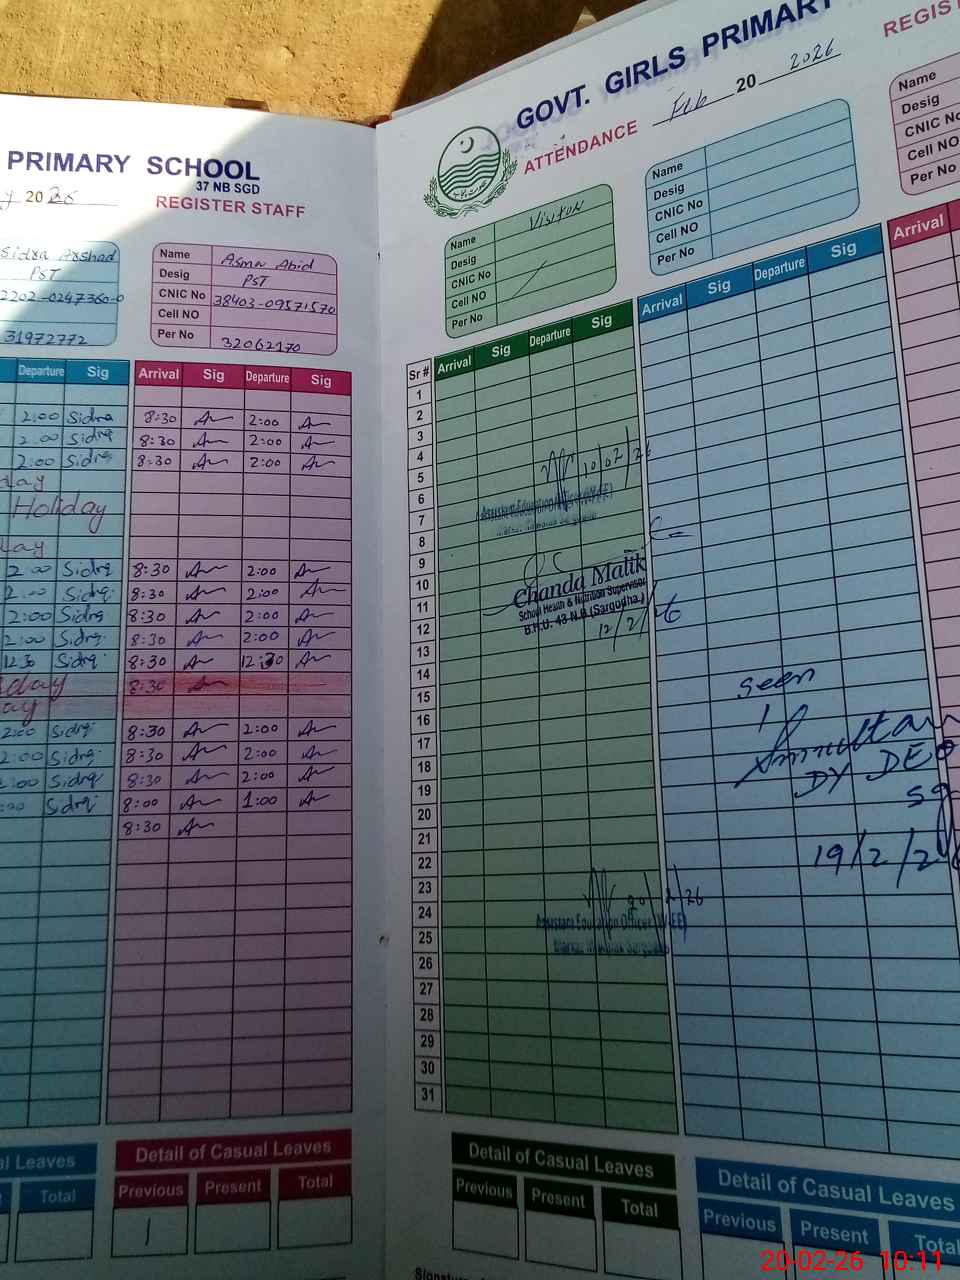 PRIMARY SCHOOL
37 NB SGD
y 20 26
REGISTER STAFF
Sidra Arshad
PST
2202-0247360-0
31972772
Name Asma Abid
Desig PST
CNIC No 38403-09571570
Cell NO
Per No 32062170
Departure Sig Arrival Sig Departure Sig
2:00 Sidra 8:30 2:00
2:00 Sidra 8:30 2:00
2:00 Sidra 8:30 2:00
day
Holiday
day
2:00 Sidra 8:30 2:00
2:00 Sidra 8:30 2:00
2:00 Sidra 8:30 2:00
2:00 Sidra 8:30 2:00
12:30 Sidra 8:30 12:30
day 8:30
ay
2:00 Sidra 8:30 2:00
2:00 Sidra 8:30 2:00
2:00 Sidra 8:30 2:00
:00 Sidra 8:00 1:00
8:30
al Leaves
Total
Detail of Casual Leaves
Previous Present Total
1
GOVT. GIRLS PRIMARY
ATTENDANCE Feb 20 2026
REGIST
Name Visitor
Desig
CNIC No
Cell NO
Per No
Name
Desig
CNIC No
Cell NO
Per No
Name
Desig
CNIC No
Cell NO
Per No
Sr # Arrival Sig Departure Sig Arrival Sig Departure Sig Arrival
1
2
3
4
5
6
7
8
9
10
11
12
13
14
15
16
17
18
19
20
21
22
23
24
25
26
27
28
29
30
31
10/02/26
Assistant Education Officer (W-EE)
Chanda Malik
School Health & Nutrition Supervisor
B.H.U. 43 N.B (Sargodha.)
12/2/26
seen
DY DEO
sg
19/2/26
20/2/26
Assistant Education Officer (W-EE)
Detail of Casual Leaves
Previous Present Total
Detail of Casual Leaves
Previous Present Total
20-02-26 10:11